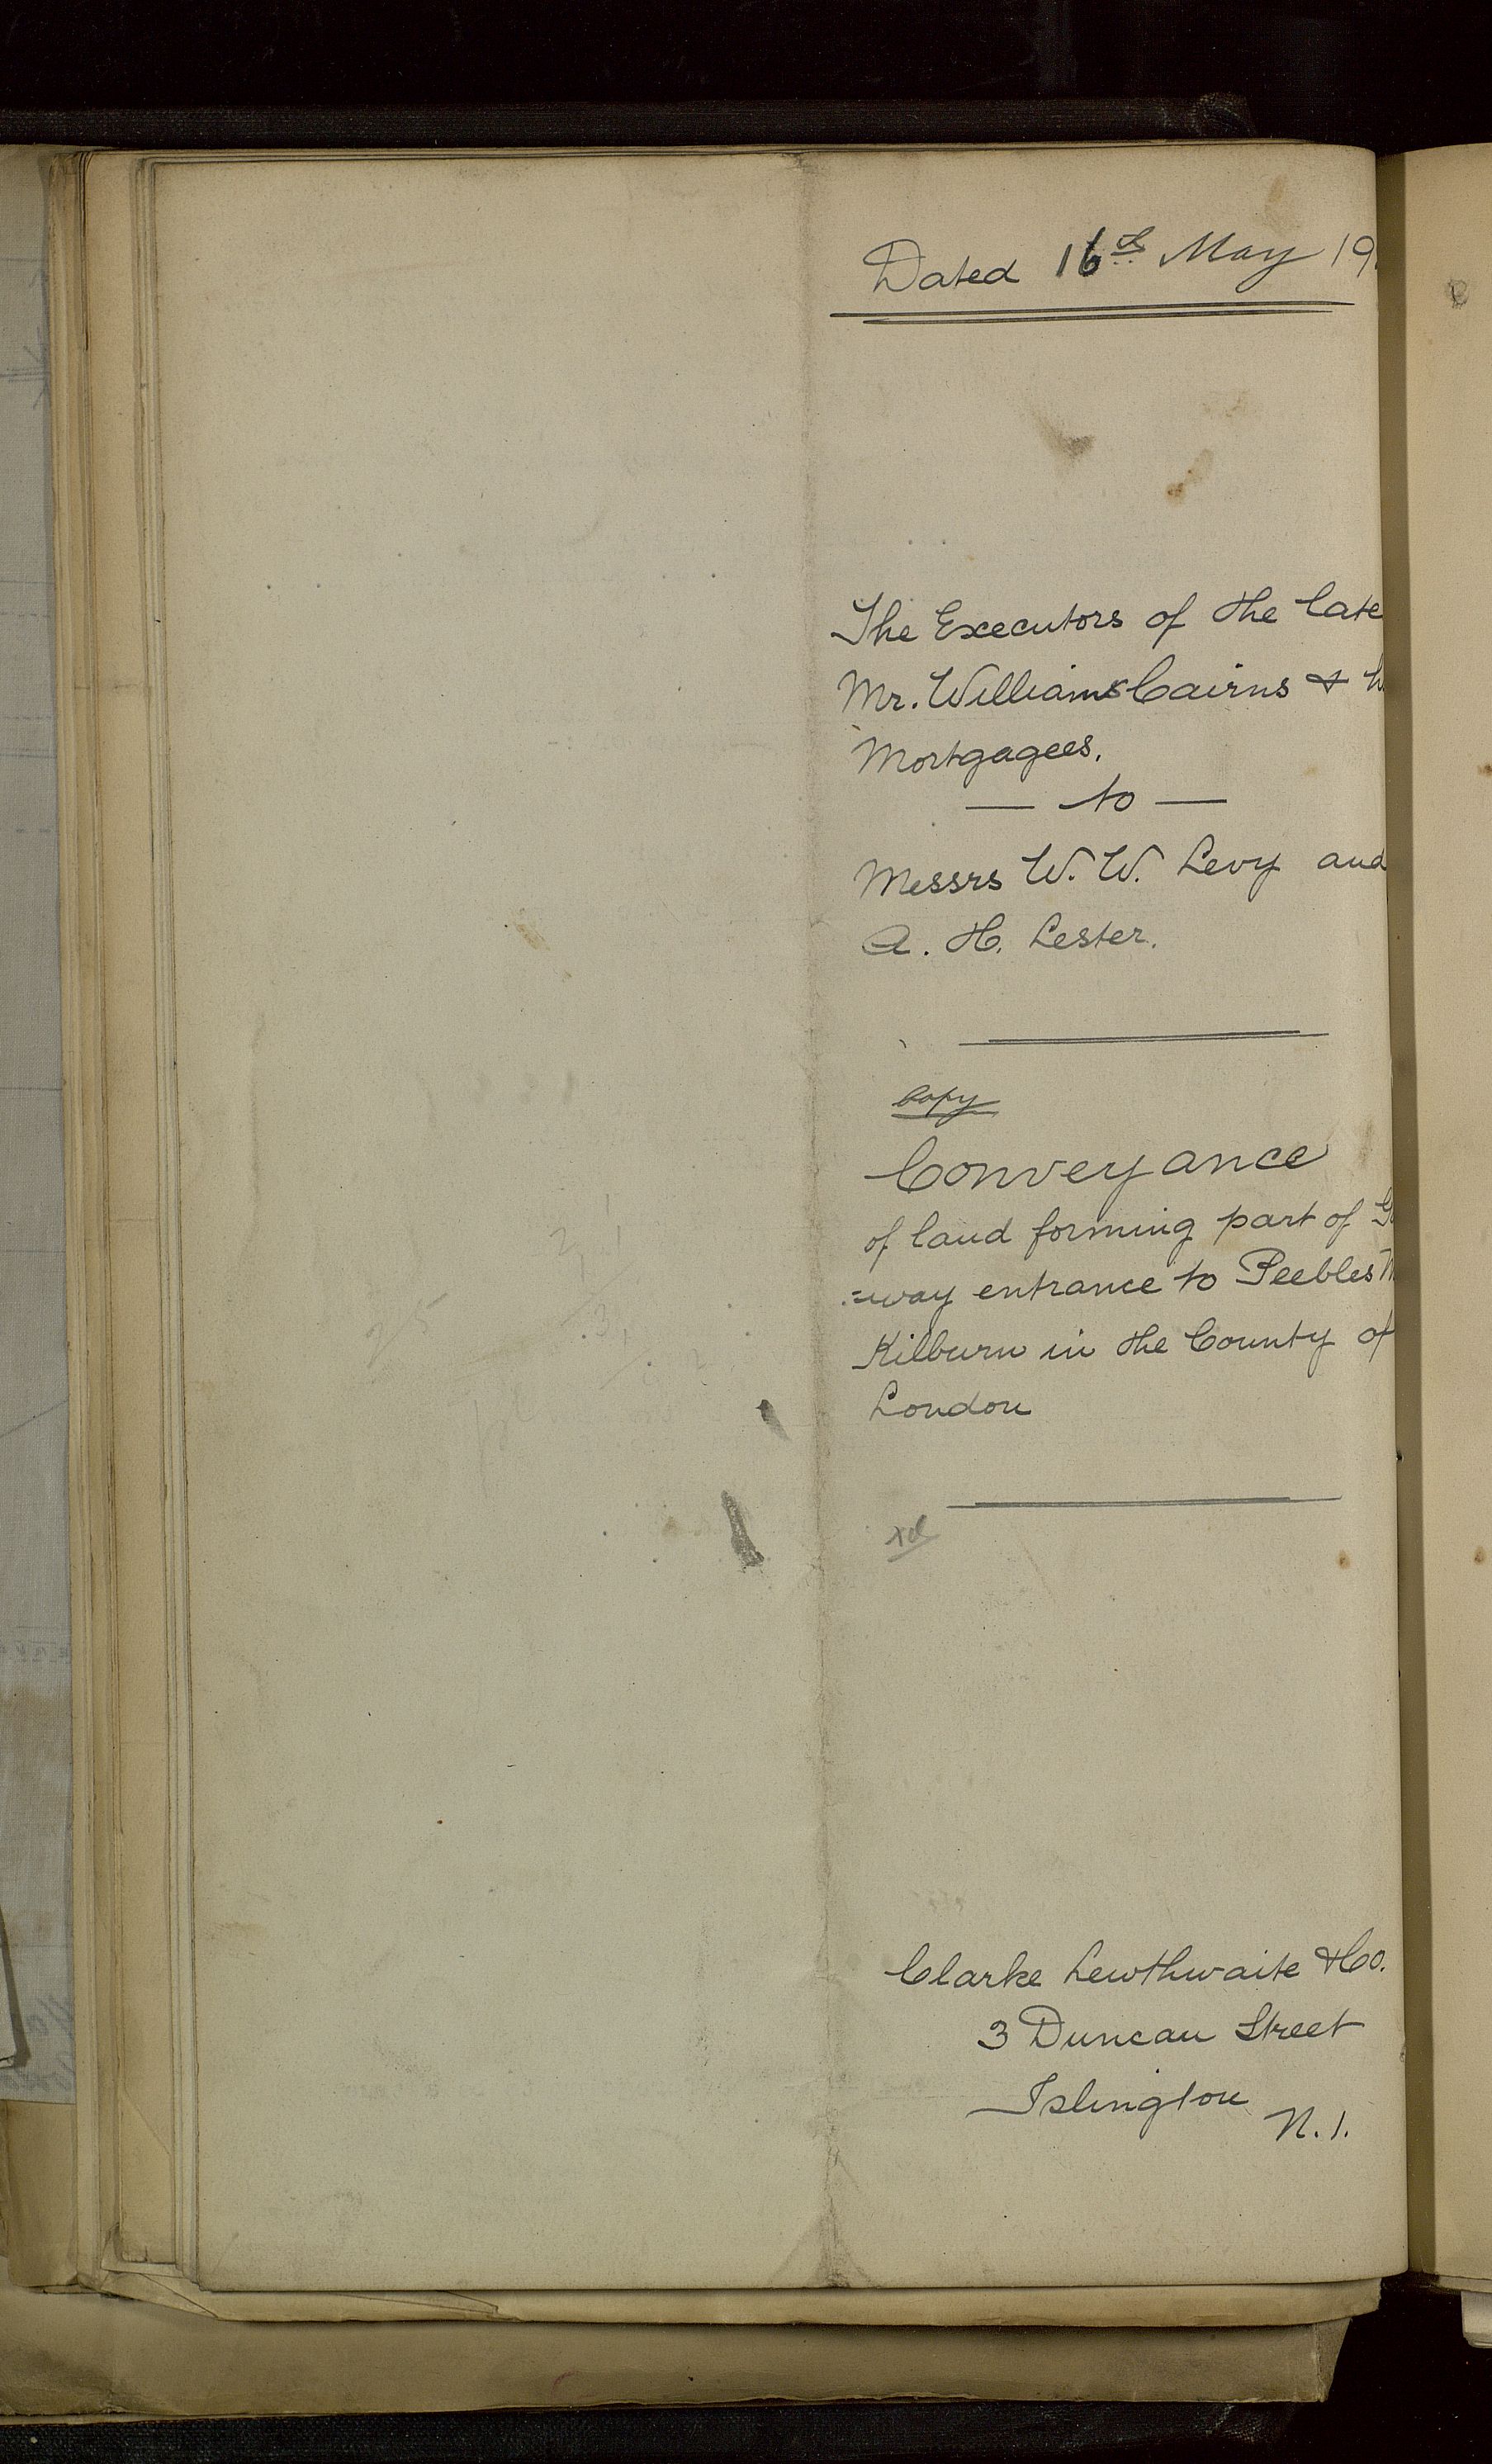 Dated 16th May 19
The Executors of the late
Mr. William Cairns &
Mortgagees.
— to —
Messrs W. W. Levy and
A. H. Lester.
Copy
Conveyance
of land forming part of
=way entrance to Peebles
Kilburn in the County of
London
Clarke Lewthwaite & Co.
3 Duncan Street
Islington
N.1.